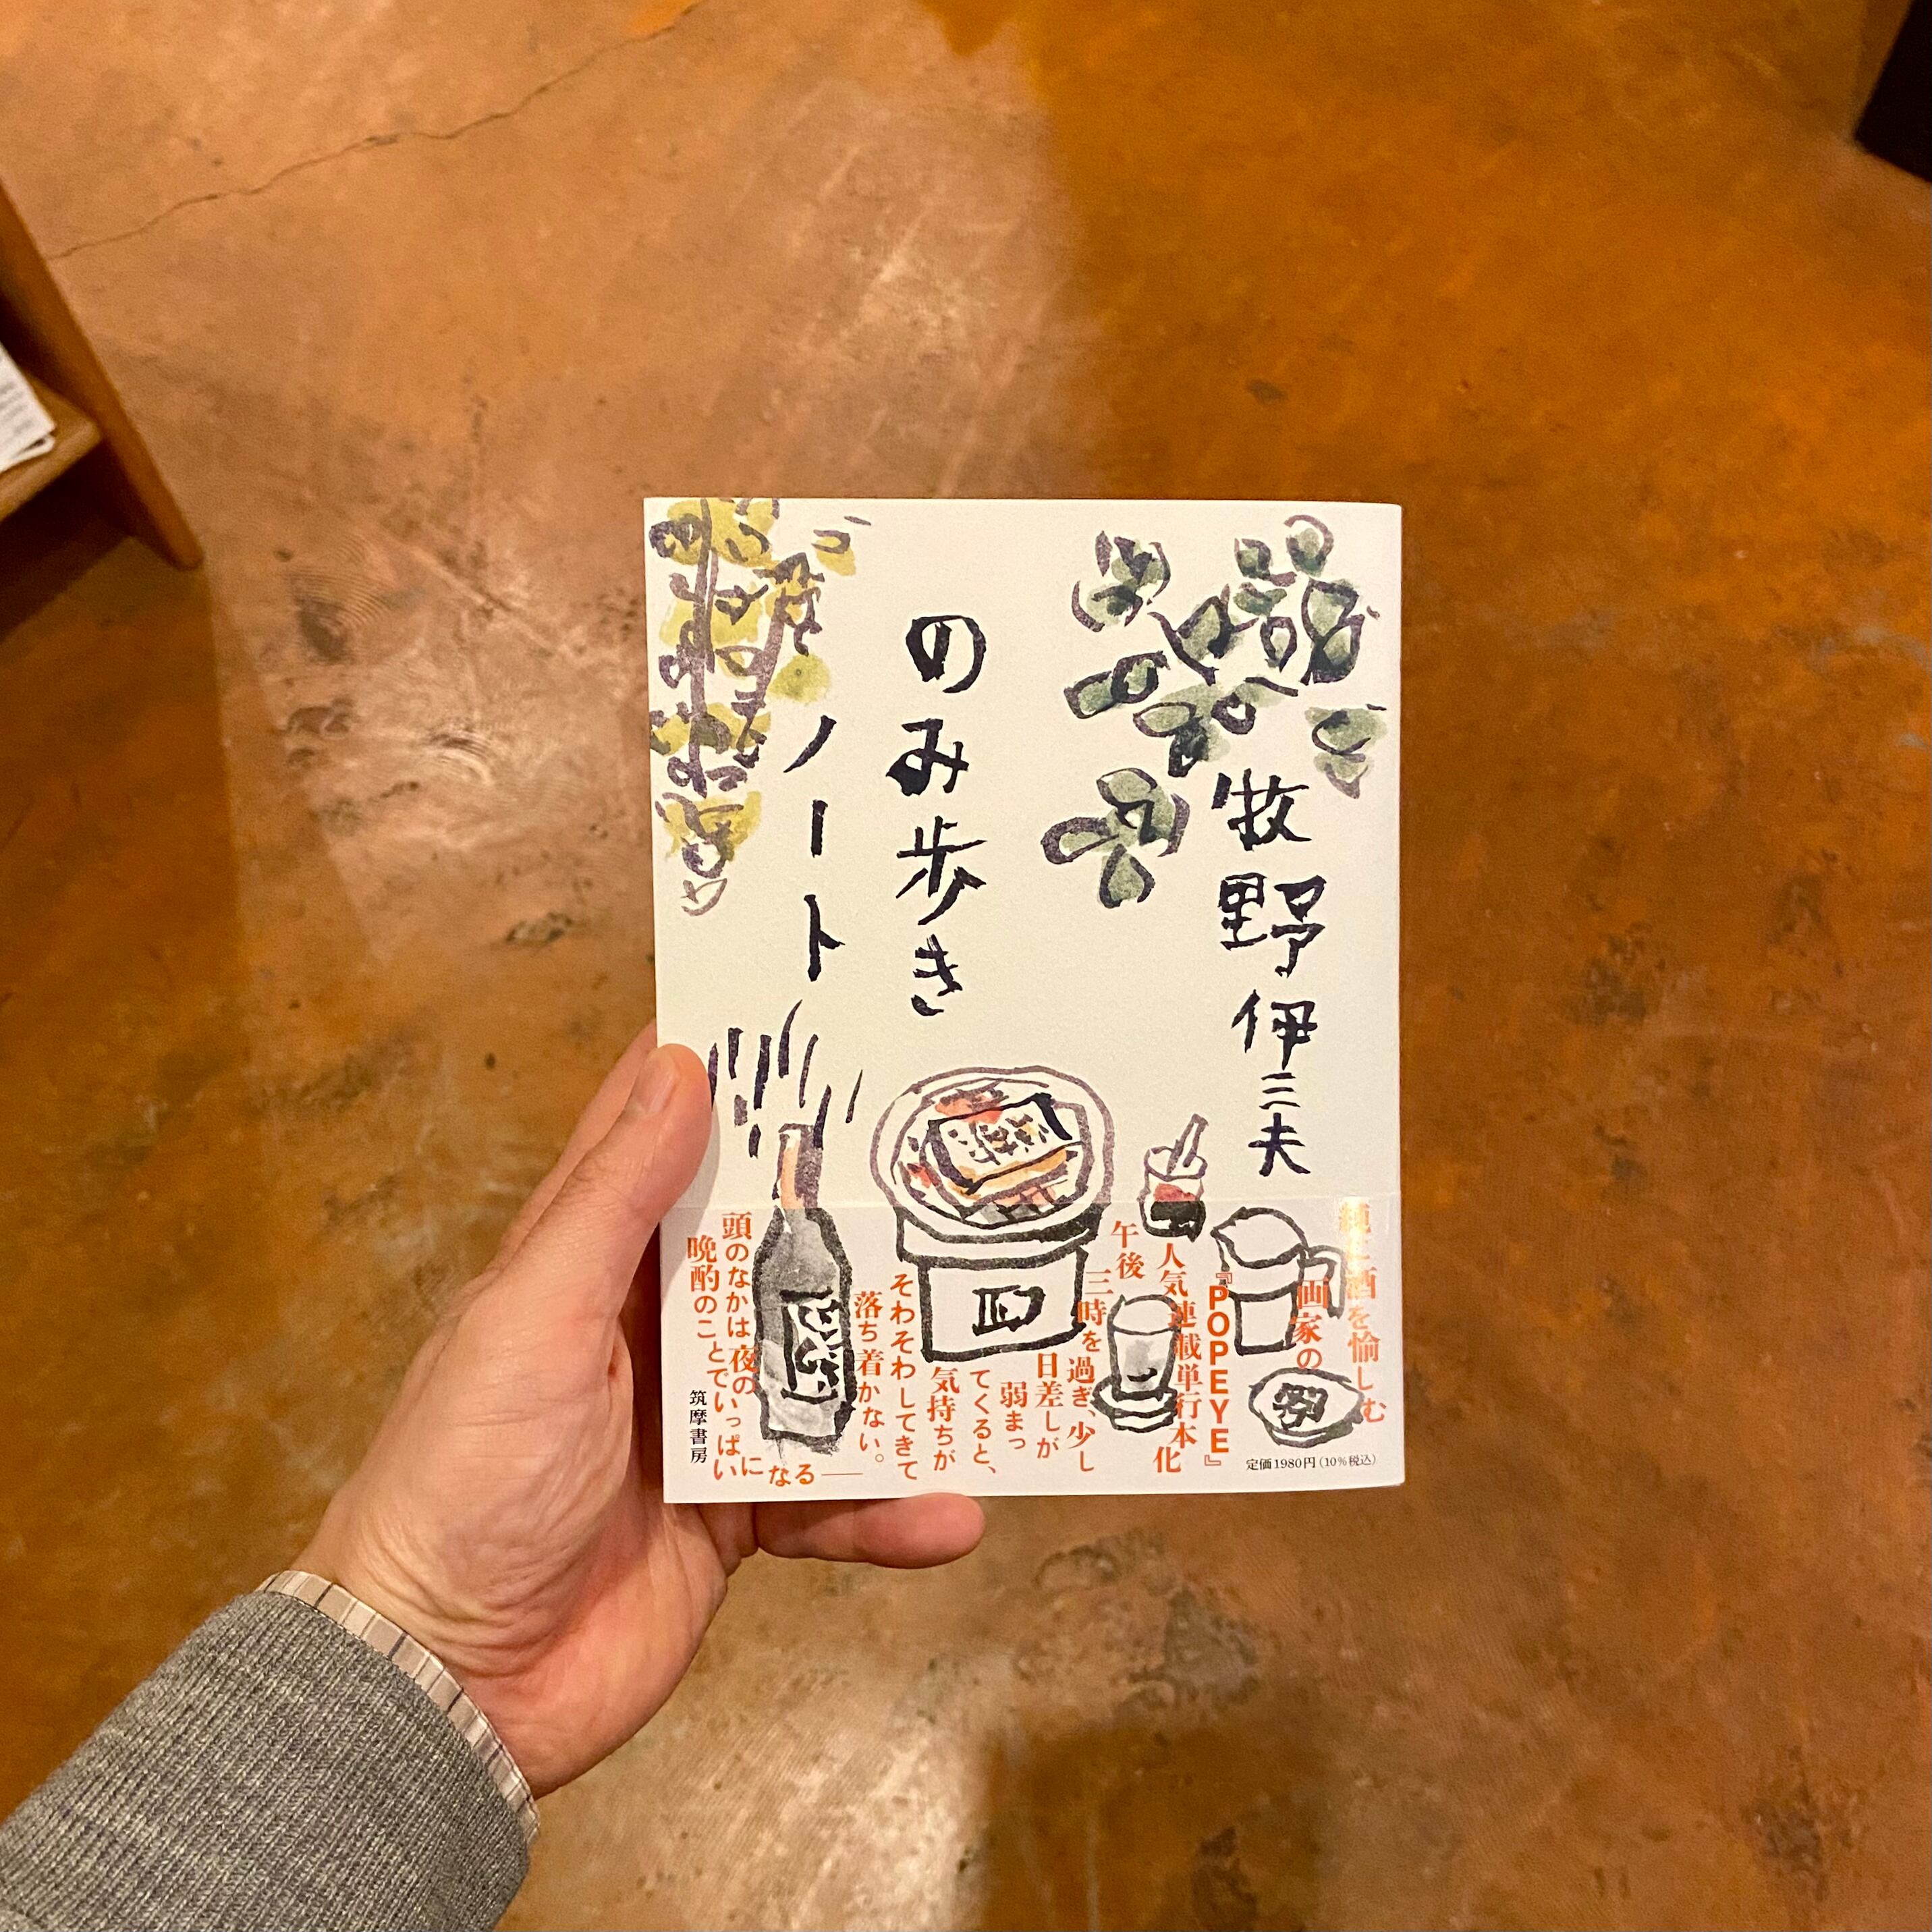 牧野伊三夫
のみ歩き
ノート
純主酒を愉しむ
画家の
『POPEYE』
人気連載単行本化
午後
三時を
過ぎ、少し
日差しが
弱まっ
てくると、
気持ちが
そわそわしてきて
落ち着かない。
頭のなかは夜の
晩酌のことでいっぱい
になる——
筑摩書房
定価1980円(10%税込)